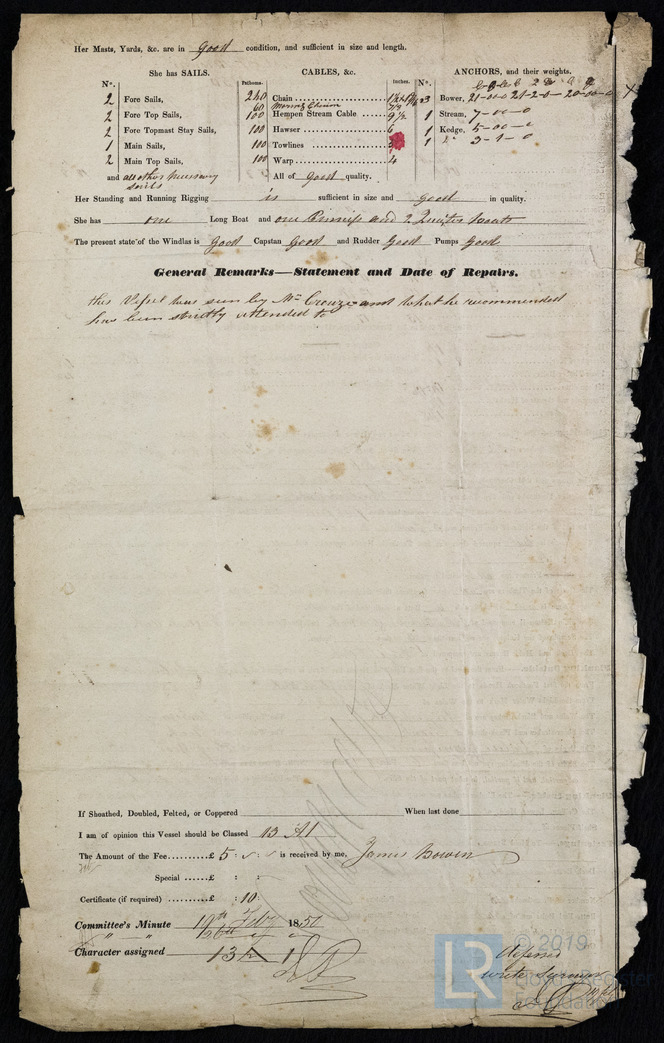 Her Masts, Yards, &c. are in good condition, and sufficient in size and length.
She has SAILS. CABLES, &c. ANCHORS, and their weights.
N°. Fathoms. Inches. N°.
2 Fore Sails, 240 Chain 3 Bower,
60 Mooring Chain 7/8
2 Fore Top Sails, 100 Hempen Stream Cable 9 1/2 1 Stream, 7-00-0
2 Fore Topmast Stay Sails, 100 Hawser 6 1 Kedge, 5-00-0
1 Main Sails, 100 Towlines 1 3-1-0
2 Main Top Sails, 100 Warp 4
and all other necessary sails All of good quality.
Her Standing and Running Rigging is sufficient in size and good in quality.
She has one Long Boat and one Pinnace and 2 Quarter boats
The present state of the Windlas is Good Capstan Good and Rudder Good Pumps Good
General Remarks—Statement and Date of Repairs.
this Vessel was seen by Mr Creuze and what he recommended
has been strictly attended to
If Sheathed, Doubled, Felted, or Coppered When last done
I am of opinion this Vessel should be Classed 13 A1
The Amount of the Fee..........£ 5 : is received by me, James Bowen
Special ......£ : :
Certificate (if required) .......£ : 10 :
Committee's Minute 19th Feby 1850
Character assigned 13 A 1
Deferred
write Surveyor
LR © 2019
Lloyd's Register
Foundation